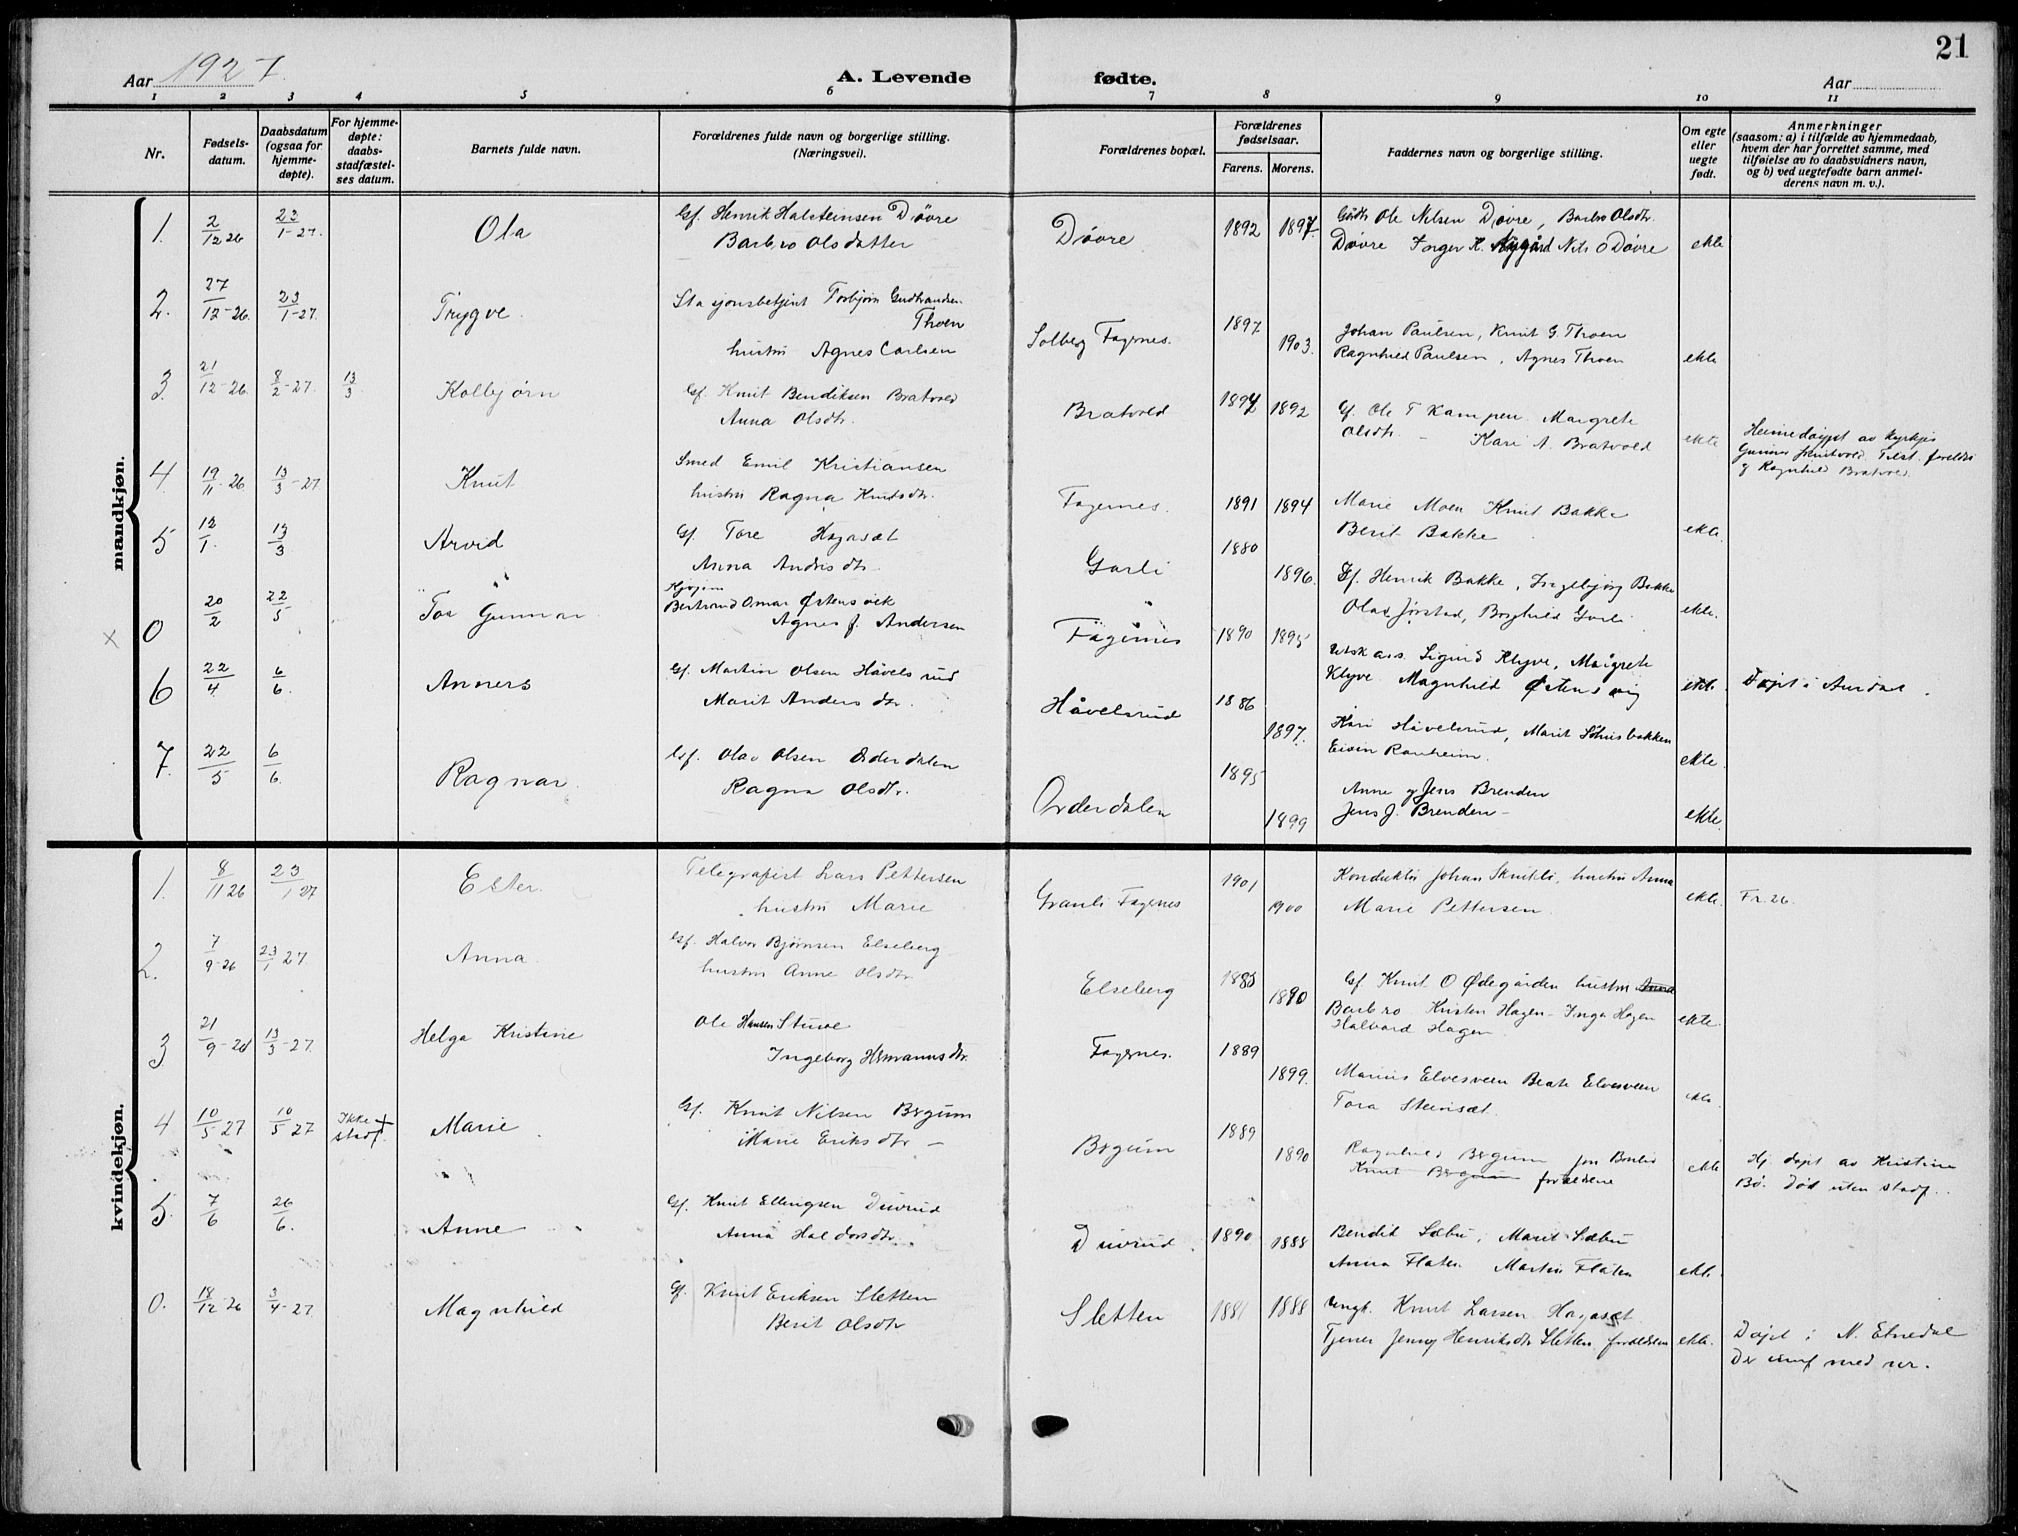 21
Aar 1927.
A. Levende fødte.
Aar
1 2 3 4 5 6 7 8 9 10 11
Nr.
Fødsels-
datum.
Daabsdatum
(ogsaa for
hjemme-
døpte).
For hjemme-
døpte:
daabs-
stadfæstel-
ses datum.
Barnets fulde navn.
Forældrenes fulde navn og borgerlige stilling.
(Næringsvei).
Forældrenes bopæl.
Forældrenes
fødselsaar.
Farens. Morens.
Faddernes navn og borgerlige stilling.
Om egte
eller
uegte
født.
Anmerkninger
(saasom: a) i tilfælde av hjemmedaab,
hvem der har forrettet samme, med
tilføielse av to daabsvidners navn,
og b) ved uegtefødte barn anmel-
derens navn m. v.).
mandkjøn.
1. 2/12 26 23/1-27. Ola Gf. Henrik Halsteinsen Døvre
Barbro Olsdatter
Døvre 1892 1897 Ole Nilsen Døvre, Barbro Olsdtr.
Døvre Inger K. Nils O Døvre ekte
2. 27/12-26. 23/1-27. Trygve. Stasjonsbetjent Torbjørn Gudbrandsen
Thoen
hustru Agnes Carlsen
Solberg Fagernes. 1897 1903. Johan Paulsen, Knut G. Thoen
Ragnhild Paulsen, Agnes Thoen ekte
3. 21/12-26. 8/2-27. 13/3 Kolbjørn Gf. Knut Bendiksen Bratvold
Anna Olsdtr.
Bratvold 1892 Gf. Ole T Kampen. Margrete
Olsdtr. – Kari A. Bratvold ekte
Heimedøypt av
Gunnar foreldre
og Ragnhild Bratvold.
4. 19/11-26 13/3-27 Knut Smed Emil Kristiansen
hustru Ragna Knutsdtr.
Fagernes. 1891 1894 Marie Moen Knut Bakke
Berit Bakke. ekte.
5 12/1. 13/3 Arvid Gf. Tore Hagaset
Anna Andris dtr.
Garli 1880 1896. Gf. Henrik Bakke, Ingebjørg Bakke
Olav Jørstad, Borghild Garli. ekte.
x 0 20/2 22/5 Gunnar
Bertrand Omar Østensvik
Agnes J. Andersen
Fagernes 1890 1895 Sigurd Klyve, Margrete
Klyve Magnhild Østensvig ekte. Døpt i Aurdal.
6 22/4 6/6. Anners Gf. Martin Olsen Håvelsrud
Marit Anders dtr.
Håvelsrud 1886 1897. Kari Håvelsrud, Marit
Eivin Ranheim. ekte.
7. 22/5 6/6. Ragnar. Gf. Olav Olsen Orderdalen
Ragna Olsdtr.
Orderdalen 1895 1899 Anne og Jens Brenden
Jens J. Brenden – ekte.
kvindekjøn.
1. 8/11 26 23/1 27 Ester. Telegrafist Lars Pettersen
hustru Marie
Granli Fagernes 1901 1900 Konduktør Johan hustru Anna
Marie Pettersen. ekte. Fr. 26.
2. 7/9-26 23/1 27. Anna. Gf. Halvor Bjørnsen Elseberg
hustru Anne Olsdtr.
Elseberg 1885 1890 Gf. Knut O Ødegården hustru Anna
Barbro Kristen Hagen – Inga Hagen
Halvard Hagen ekte
3. 21/9-26 13/3-27. Helga Kristine Ole Hansen Stuve
Ingeborg Hermannsdtr.
Fagernes. 1889 1899. Marius Elvesveen Beate Elvesveen
Tora Steinset.
4 10/5 27 10/5 27 Ikke
stadf. + Marie Gf. Knut Nilsen Bergum
Marie Eriks dtr –
Bergum 1889 1890 Ragnhild Bergum
Knut Bergum foreldrene ekte Hj. døpt av Kristine
Bø. Død uten stadf.
5. 7/6 26/6. Anne Gf. Knut Ellingsen Duvrud
Anna Haldorsdtr.
Duvrud. 1890 1888 Bendik Sæbu, Marit Sæbu
Anna Flaten Martin Flaten ekte
0. 18/12-26 3/4-27 Magnhild Gf. Knut Eriksen Sletten
Berit Olsdtr
Sletten 1881 1888 Ungk. Knut Larsen Hagaset
Tjener Jenny Henriksdtr Sletten, foreldrene ekte. Døpt i N. Etnedal